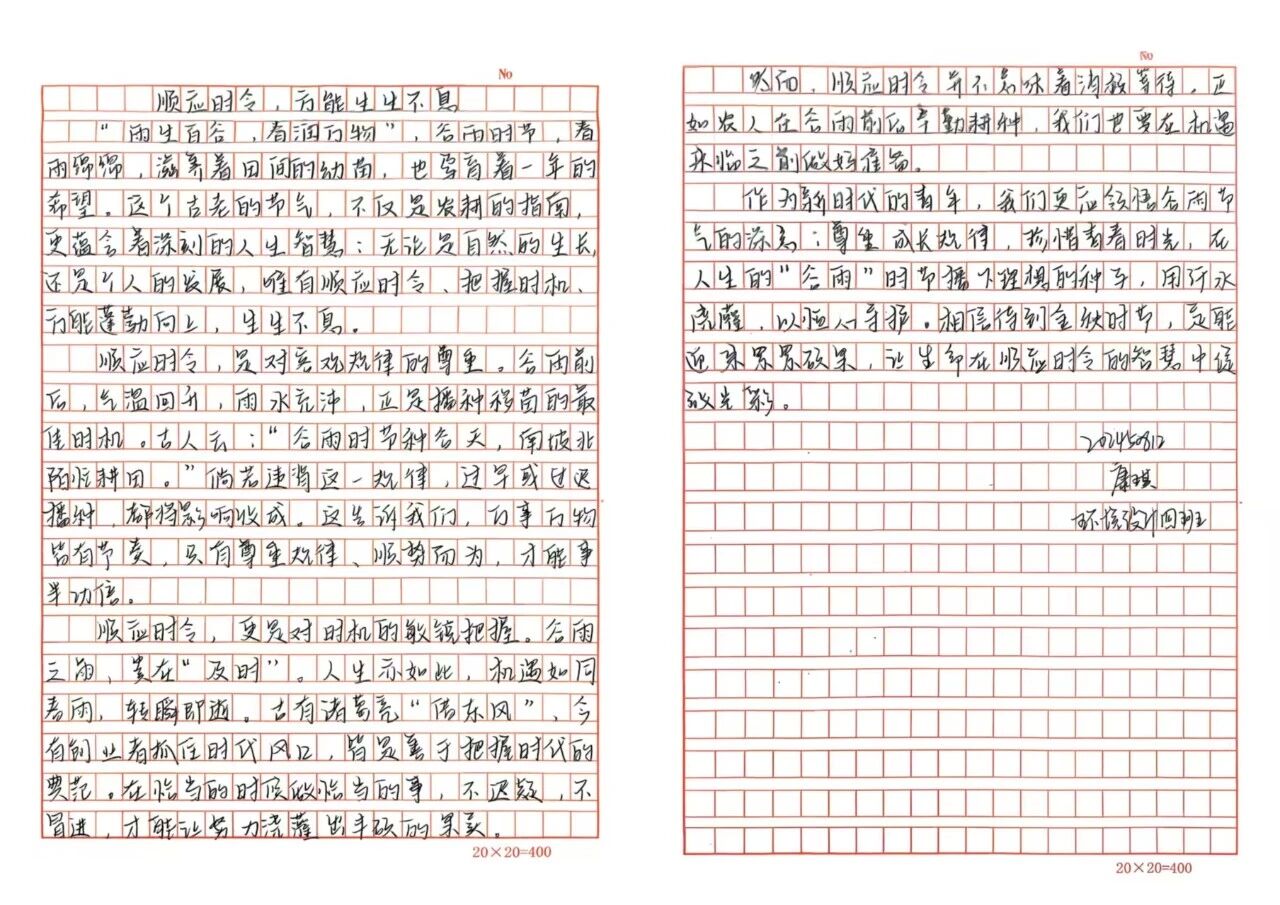 No
顺应时令，方能生生不息
“雨生百谷，春润万物”，谷雨时节，春
雨绵绵，滋养着田间的幼苗，也孕育着一年的
希望。这个古老的节气，不仅是农耕的指南，
更蕴含着深刻的人生智慧：无论是自然的生长，
还是个人的发展，唯有顺应时令、把握时机、
方能蓬勃向上，生生不息。
顺应时令，是对客观规律的尊重。谷雨前
后，气温回升，雨水充沛，正是播种移苗的最
佳时机。古人云：“谷雨时节种谷天，南坡北
陌忙耕田。”倘若违背这一规律，过早或过迟
播种，都将影响收成。这告诉我们，万事万物
皆有节奏，只有尊重规律、顺势而为，才能事
半功倍。
顺应时令，更是对时机的敏锐把握。谷雨
之雨，贵在“及时”。人生亦如此，机遇如同
春雨，转瞬即逝。古有诸葛亮“借东风”，今
有创业者抓住时代风口，皆是善于把握时代的
典范。在恰当的时候做恰当的事，不迟疑，不
冒进，才能让努力浇灌出丰硕的果实。
20×20=400
No
然而，顺应时令并不意味着消极等待。正
如农人在谷雨前后辛勤耕种，我们也要在机遇
来临之前做好准备。
作为新时代的青年，我们更应领悟谷雨节
气的深意：尊重成长规律，珍惜青春时光，在
人生的“谷雨”时节播下理想的种子，用汗水
浇灌，以恒心守护。相信待到金秋时节，定能
迎来累累硕果，让生命在顺应时令的智慧中绽
放光彩。
202450812
康琪
环境设计四班
20×20=400